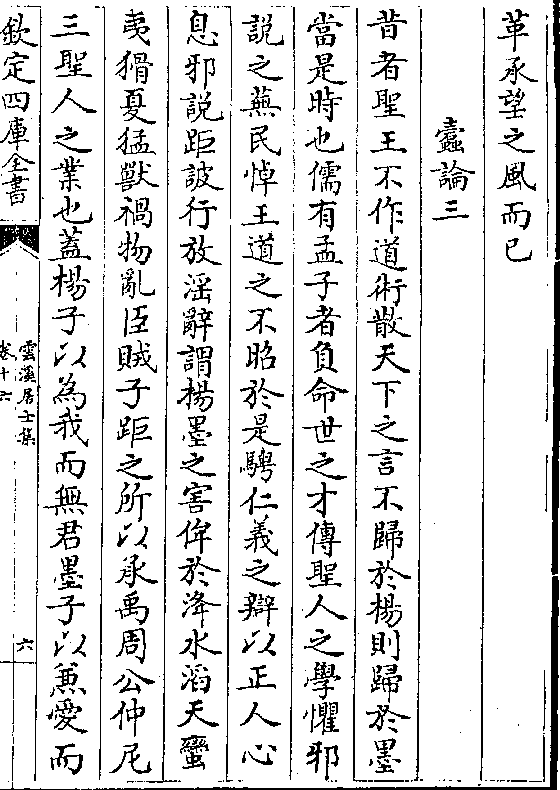 革承望之風而已
蠹論三
昔者聖王不作道術散天下之言不歸於楊則歸於墨
當是時也儒有孟子者負命世之才傳聖人之學懼邪
說之蕪民悼王道之不昭於是騁仁義之辯以正人心
息邪說距詖行放滛辭謂楊墨之害侔於洚水滔天蠻
夷猾夏猛獸禍物亂臣賊子距之所以承禹周公仲尼
三聖人之業也蓋楊子以為我而無君墨子以兼愛而
欽定四庫全書
雲溪居士集
卷十六
六